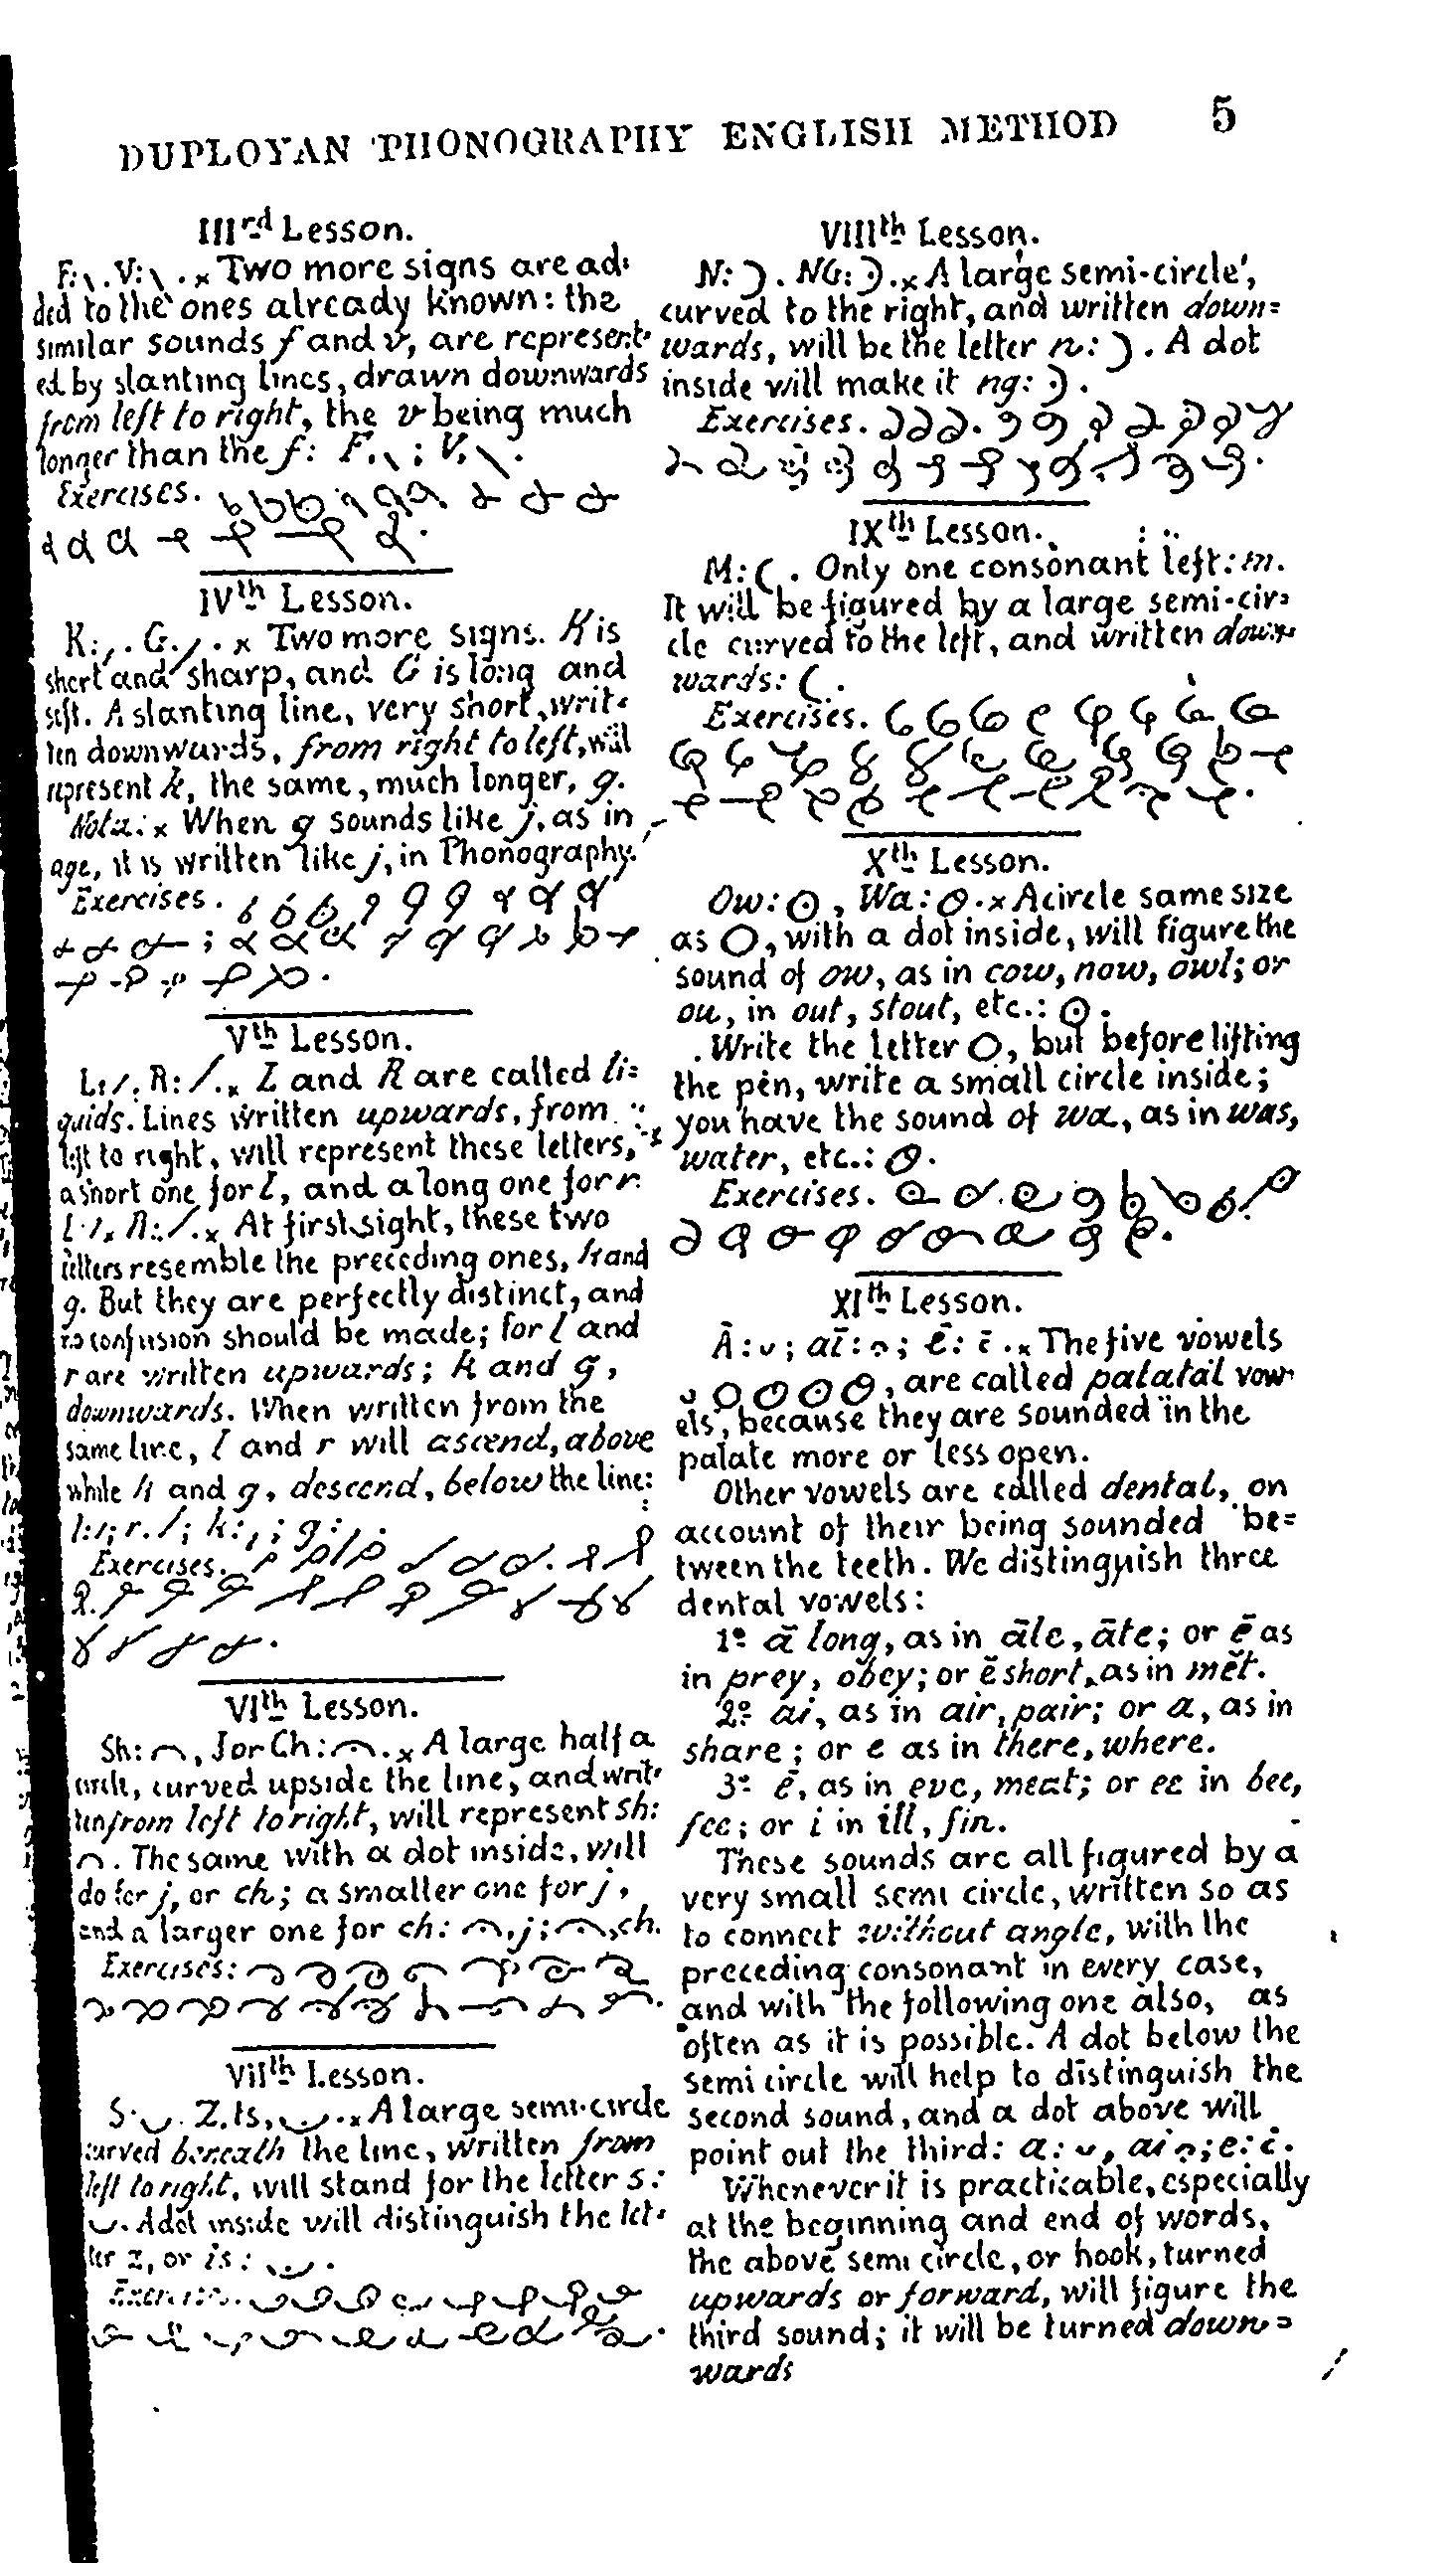 DUPLOYAN PHONOGRAPHY ENGLISH METHOD 5
IIIrd Lesson.
F: . V: . × Two more signs are ad=
ded to the ones already known: the
similar sounds f and v, are represent=
ed by slanting lines, drawn downwards
from left to right, the v being much
longer than the f: F. ; V. .
Exercises.
IVth Lesson.
K: . G. . × Two more signs. K is
short and sharp, and G is long and
soft. A slanting line, very short, writ=
ten downwards, from right to left, will
represent k, the same, much longer, g.
Nota: × When g sounds like j, as in
age, it is written like j, in Phonography.
Exercises.
Vth Lesson.
L: . R: . × L and R are called li=
quids. Lines written upwards, from
left to right, will represent these letters,
a short one for l, and a long one for r.
L . R: . × At first sight, these two
letters resemble the preceding ones, k and
g. But they are perfectly distinct, and
no confusion should be made; for l and
r are written upwards; k and g,
downwards. When written from the
same line, l and r will ascend, above
while k and g, descend, below the line:
l: ; r. ; k: ; g: .
Exercises.
VIth Lesson.
Sh: , J or Ch: . × A large half a
circle, curved upside the line, and writ=
ten from left to right, will represent sh:
. The same with a dot inside, will
do for j, or ch; a smaller one for j,
and a larger one for ch: , j; , ch.
Exercises:
VIIth Lesson.
S . Z. Is, . × A large semi-circle
curved beneath the line, written from
left to right, will stand for the letter s:
. A dot inside will distinguish the let=
ter z, or is: .
Exercises.
VIIIth Lesson.
N: . NG: . × A large semi-circle,
curved to the right, and written down=
wards, will be the letter n: . A dot
inside will make it ng: .
Exercises.
IXth Lesson.
M: . Only one consonant left: m.
It will be figured by a large semi-cir=
cle curved to the left, and written down=
wards: .
Exercises.
Xth Lesson.
Ow: , Wa: . × A circle same size
as O, with a dot inside, will figure the
sound of ow, as in cow, now, owl; or
ou, in out, stout, etc.: .
Write the letter O, but before lifting
the pen, write a small circle inside;
you have the sound of wa, as in was,
water, etc.: .
Exercises.
XIth Lesson.
Ā: ; aī: ; ē: . × The five vowels
, are called palatal vow=
els, because they are sounded in the
palate more or less open.
Other vowels are called dental, on
account of their being sounded be=
tween the teeth. We distinguish three
dental vowels:
1º ā long, as in āle, āte; or ē as
in prey, obey; or ĕ short, as in mĕt.
2º ai, as in air, pair; or a, as in
share; or e as in there, where.
3º ē, as in eve, meat; or ee in bee,
fee; or i in ill, fin.
These sounds are all figured by a
very small semi circle, written so as
to connect without angle, with the
preceding consonant in every case,
and with the following one also, as
often as it is possible. A dot below the
semi circle will help to distinguish the
second sound, and a dot above will
point out the third: a: , ai ; e: .
Whenever it is practicable, especially
at the beginning and end of words,
the above semi circle, or hook, turned
upwards or forward, will figure the
third sound; it will be turned down=
wards